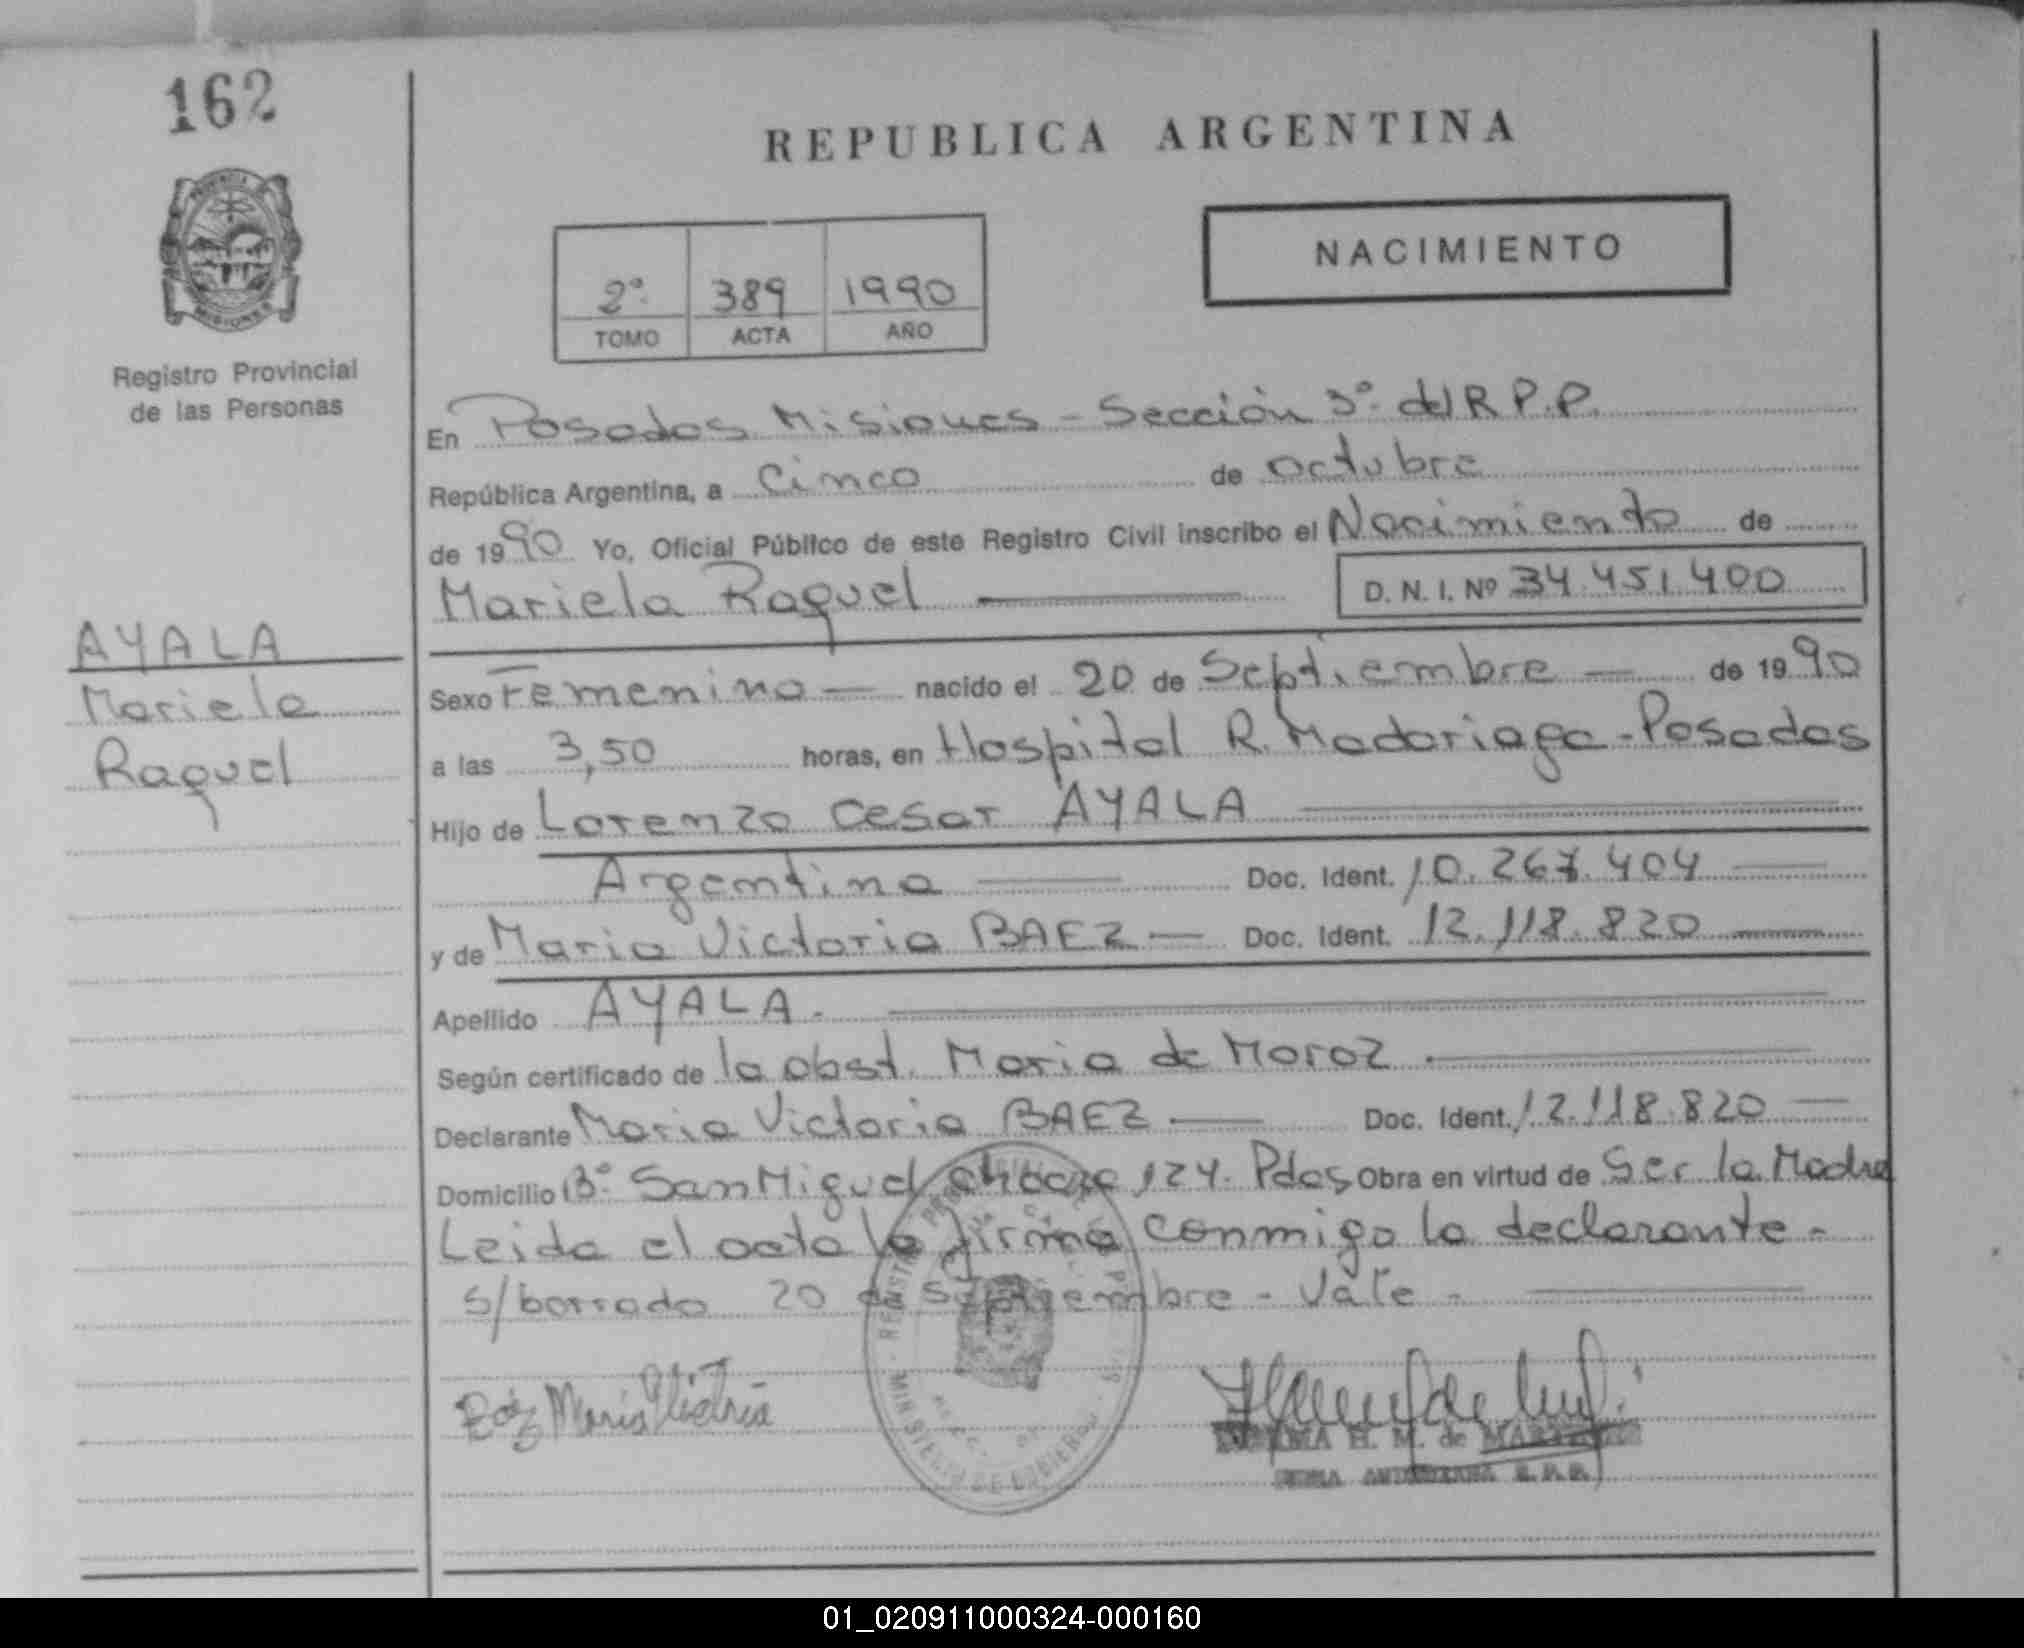 162
REPUBLICA ARGENTINA
PROVINCIA
MISIONES
NACIMIENTO
2º 389 1990
TOMO ACTA AÑO
Registro Provincial
de las Personas
En Posadas Misiones - Sección 3º del R P.P.
República Argentina, a cinco de octubre
de 1990 Yo, Oficial Público de este Registro Civil inscribo el Nacimiento de
Mariela Raquel D. N. I. Nº 34.451.400
AYALA
Mariela
Raquel
Sexo Femenino — nacido el 20 de Septiembre — de 1990
a las 3,50 horas, en Hospital R. Madariaga - Posadas
Hijo de Lorenzo Cesar AYALA
Argentina Doc. Ident. 10.267.404
y de Maria Victoria BAEZ — Doc. Ident. 12.118.820
Apellido AYALA.
Según certificado de la obst. Maria de Moroz.
Declarante Maria Victoria BAEZ — Doc. Ident. 12.118.820
Domicilio Bº San Miguel 124. Pdas Obra en virtud de Ser la Madre
Leida el acta la firma conmigo la declarante -
s/borrado 20 de Septiembre - Vale -
Baéz Maria Victoria
H. M. de
MINISTERIO DE GOBIERNO
01_020911000324-000160